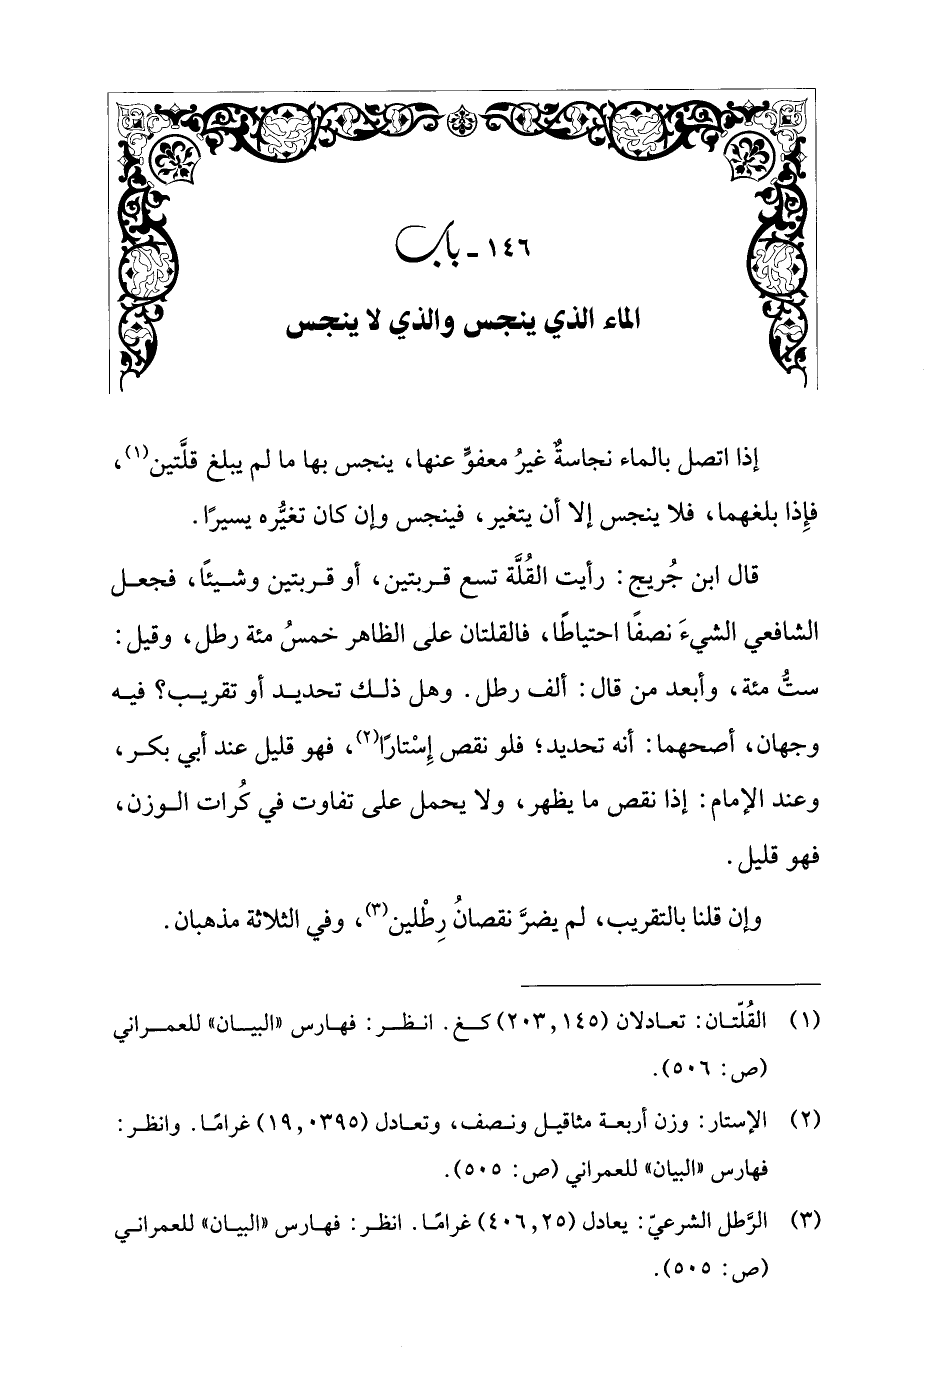 ١٤٦ - باب
الماء الذي ينجس والذي لا ينجس
إذا اتصل بالماء نجاسةٌ غيرُ معفوٍّ عنها، ينجس بها ما لم يبلغ قلَّتين(١)،
فإِذا بلغهما، فلا ينجس إلا أن يتغير، فينجس وإن كان تغيُّره يسيرًا.
قال ابن جُريج: رأيت القُلَّة تسع قربتين، أو قربتين وشيئًا، فجعل
الشافعي الشيءَ نصفًا احتياطًا، فالقلتان على الظاهر خمسُ مئة رطل، وقيل:
ستُّ مئة، وأبعد من قال: ألف رطل. وهل ذلك تحديد أو تقريب؟ فيه
وجهان، أصحهما: أنه تحديد؛ فلو نقص إِسْتارًا(٢)، فهو قليل عند أبي بكر،
وعند الإمام: إذا نقص ما يظهر، ولا يحمل على تفاوت في كُرات الوزن،
فهو قليل.
وإن قلنا بالتقريب، لم يضرَّ نقصانُ رِطْلين(٣)، وفي الثلاثة مذهبان.
(١) القُلّتان: تعادلان (٢٠٣,١٤٥) كغ. انظر: فهارس «البيان» للعمراني
(ص: ٥٠٦).
(٢) الإستار: وزن أربعة مثاقيل ونصف، وتعادل (١٩,٠٣٩٥) غرامًا. وانظر:
فهارس «البيان» للعمراني (ص: ٥٠٥).
(٣) الرَّطل الشرعيّ: يعادل (٤٠٦,٢٥) غرامًا. انظر: فهارس «البيان» للعمراني
(ص: ٥٠٥).